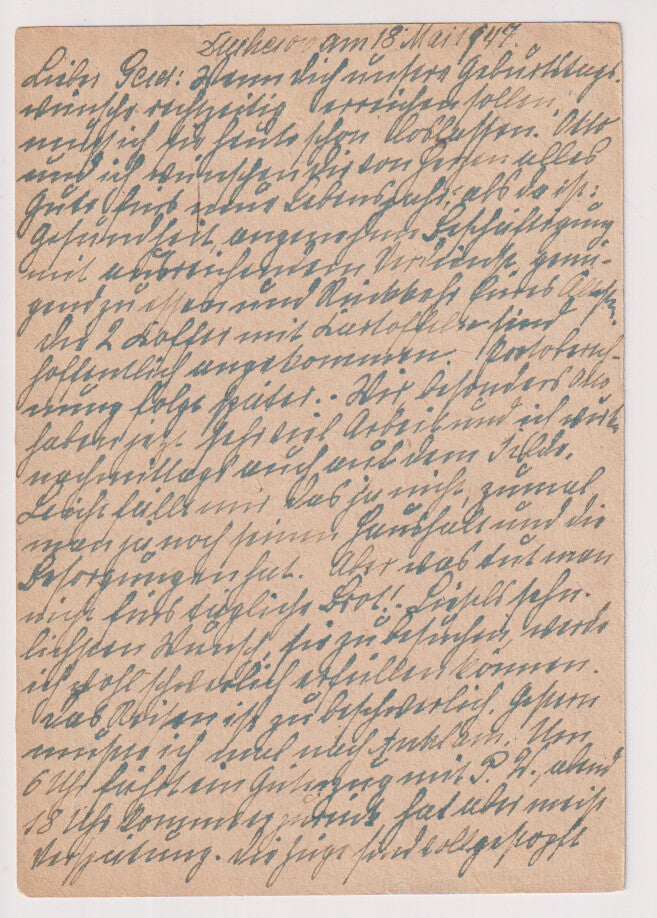 Ducherow am 18. Mai 1947.
Lieber Gerd: Wenn dich unsere Geburtstags-
wünsche rechzeitig erreichen sollen,
muß ich sie heute schon loslassen. Otto
und ich wünschen Dir von Herzen alles
Gute fürs neue Lebensjahr, als da ist:
Gesundheit, angenehme Beschäftigung
mit ausreichendem Verdienst, genü-
gend zu essen und Rückkehr
Die 2 Koffer mit Kartoffeln sind
hoffentlich angekommen.
nung folgt später. Wir, besonders Otto
haben jetzt sehr viel Arbeit und ich muß
nachmittags auch auf dem Felde.
Leicht fällt mir das ja nicht, zumal
man ja noch seinen Haushalt und die
Besorgungen hat. Aber was tut man
nicht fürs tägliche Brot!. sehn-
lichsten Wunsch, sie zu besuchen, werde
ich wohl schwerlich erfüllen können.
Das Reisen ist zu beschwerlich. Gestern
mußte ich mal nach Anklam. Um
6 Uhr fährt ein Güterzug mit P. W., abend
18 Uhr kommt er zurück, hat aber meist
Verspätung. Die Züge sind vollgestopft